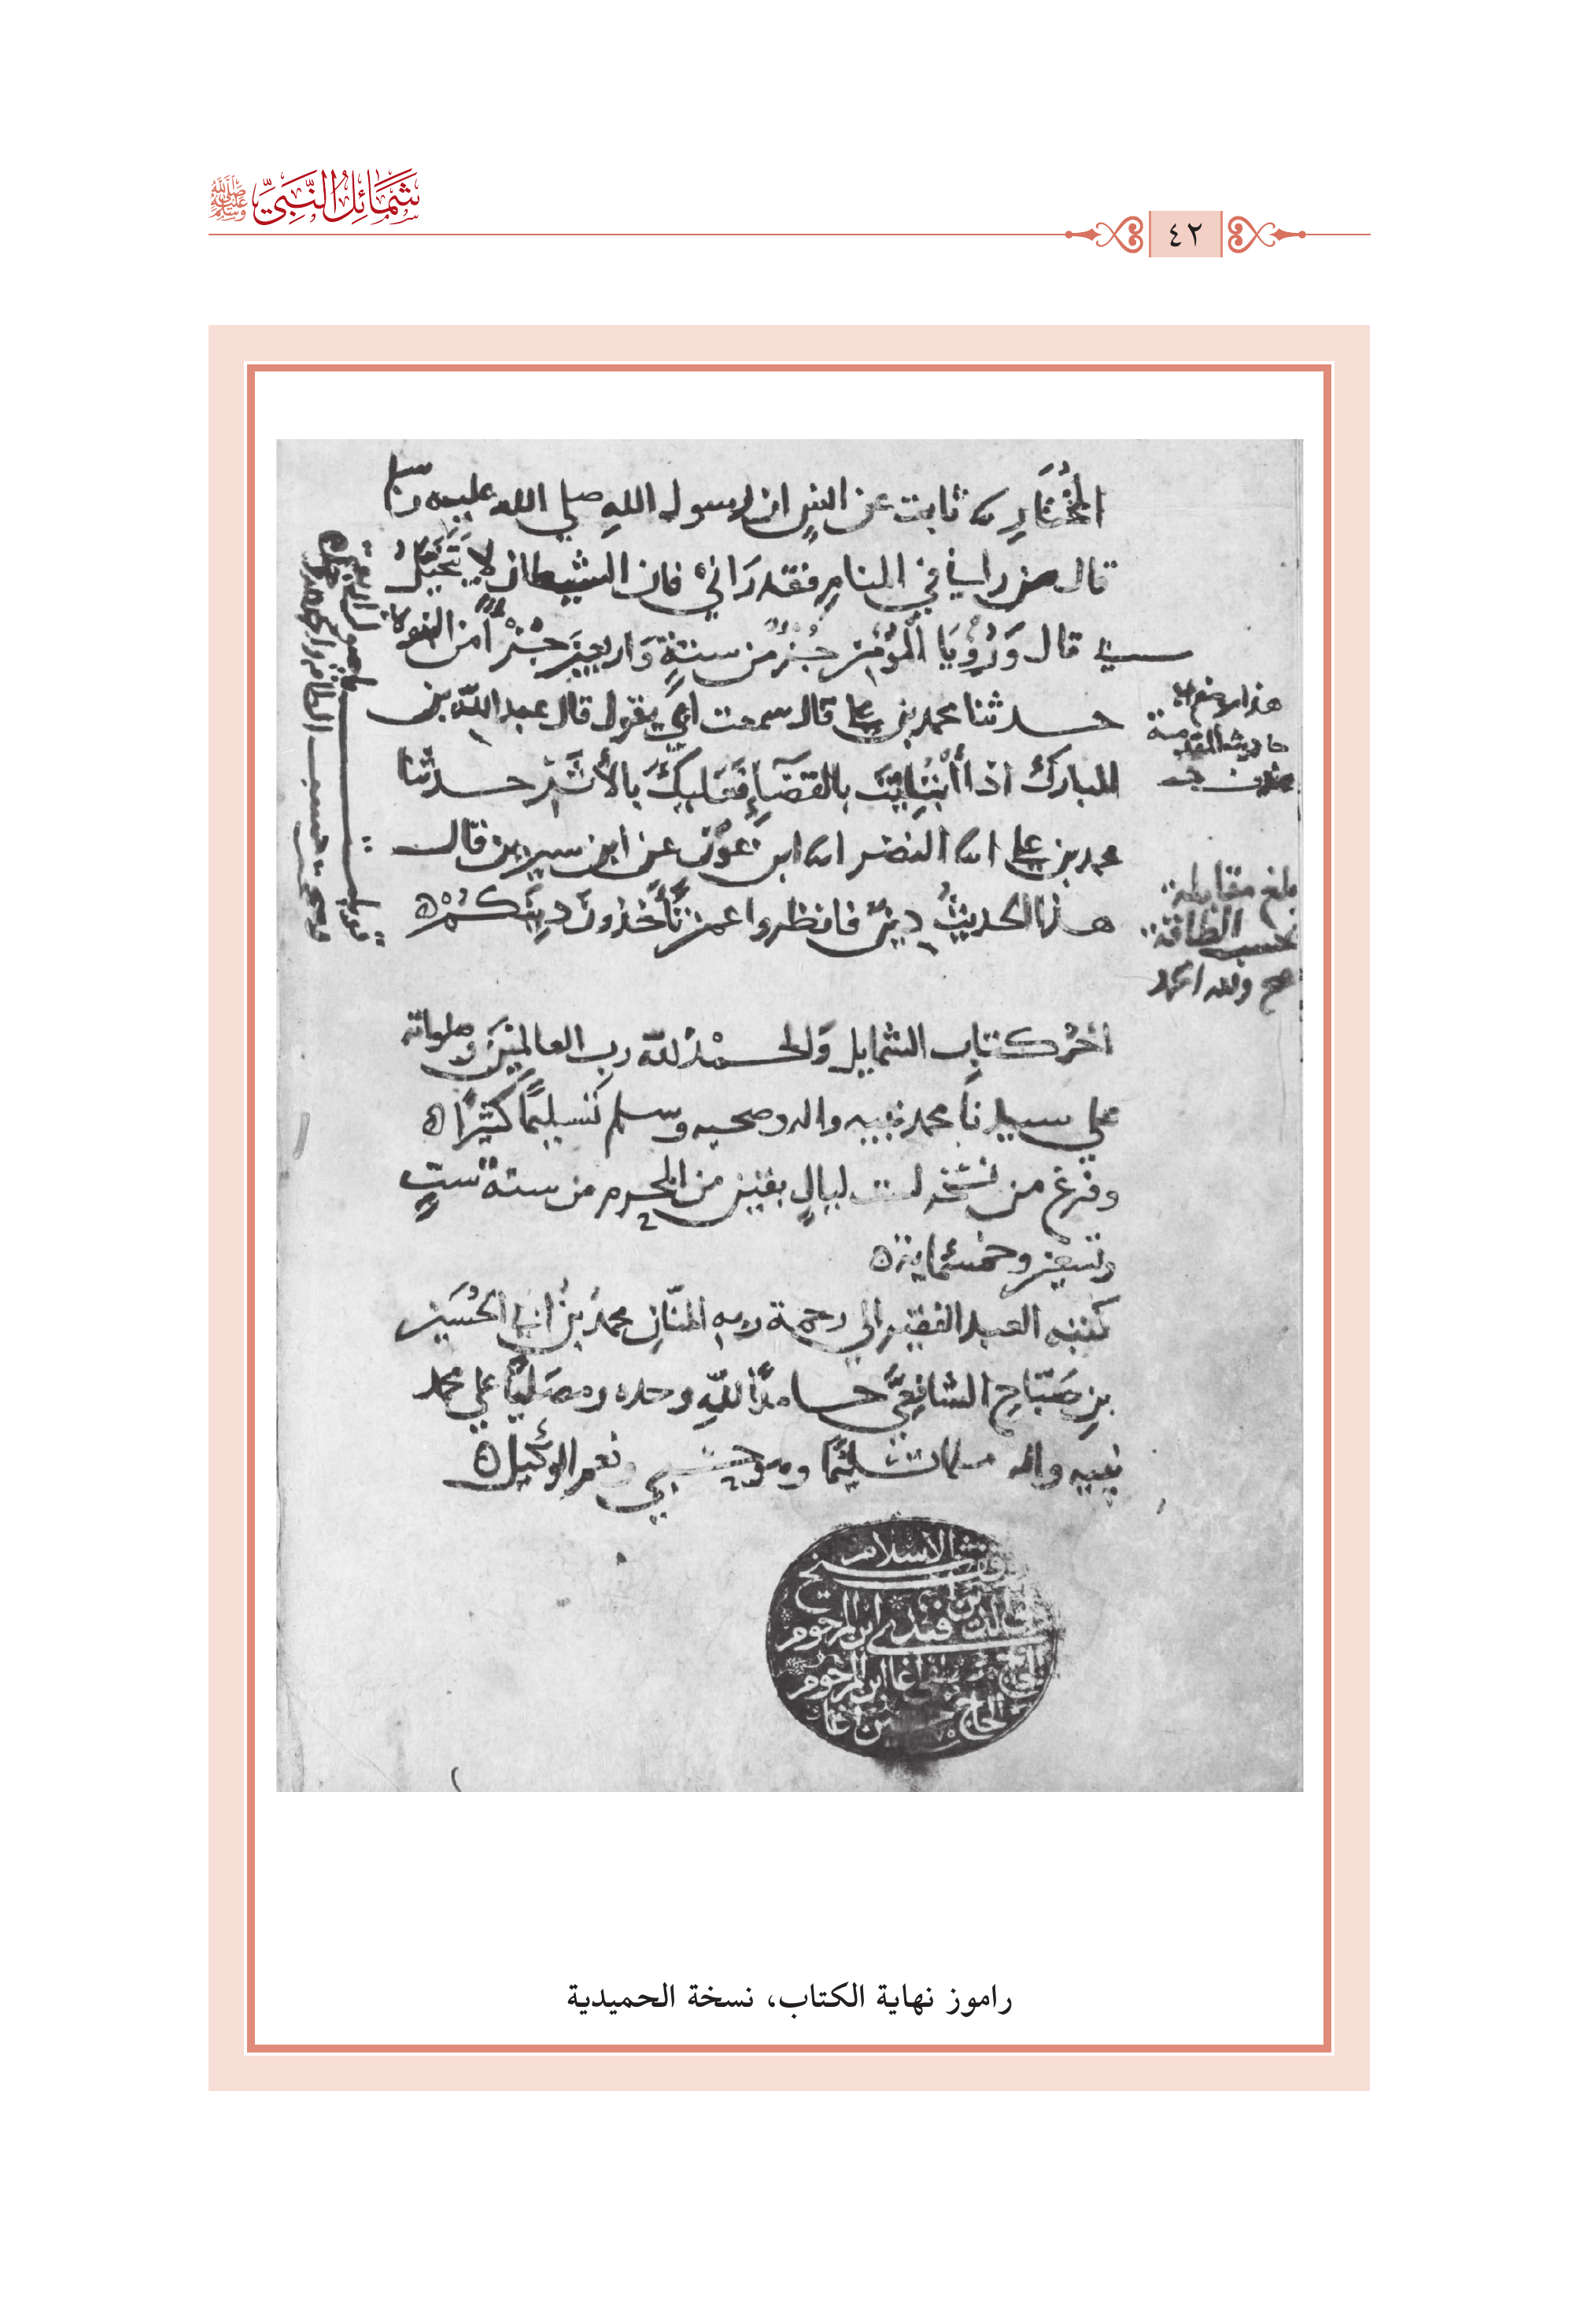 شَمَائِلُ النَّبِيِّ ﷺ
٤٢
المُخْتَارِ ثابت عن انسٍ ان رسول اللهِ صلي الله عليه وسلم
قال من راني في المنامِ فقد رَاني فان الشيطان لا يَتَخَيَّلُ
بي قال وَرُؤْيَا المُؤمن جُزءٌ من ستةٍ وَاربعينَ جُزْءًا من النبوة
حدثنا محمد بن علي قال سمعت ابي يقول قال عبد الله بن
المبارك اذا أُبْتُلِيتَ بالقَضَاءِ فَعَليكَ بالأَثَر حدثنا
محمد بن علي النضر ابن عَوْن عن ابن سيرين قال
هذا الحديثُ دينٌ فانظروا عمن تَأْخُذونَ دِينَكُمْ
بلغ مقابلة
بحسب الطاقة
صح ولله الحمد
اخرُ كتابِ الشمايل وَالحمدُ لله رب العالمينَ وصلواته
علي سيدنا محمد نبيه واله وصحبه وسلم تَسليمًا كَثيرًا
وفرغ من نسخه لست ليالٍ بقين من المحرم من سنة ستٍ
وتسعين وخمسماية
كتبه العبد الفقير الي رحمة ربه المنّانِ محمدُ بنُ ابي الحُسَين
بنِ صَبَّاحِ الشافِعِيّ حامدًا للهِ وحده ومصَليًا علي محمد
نبيه واله مسلما تسليمًا وهو حسبي ونعم الوكيل
راموز نهاية الكتاب، نسخة الحميدية